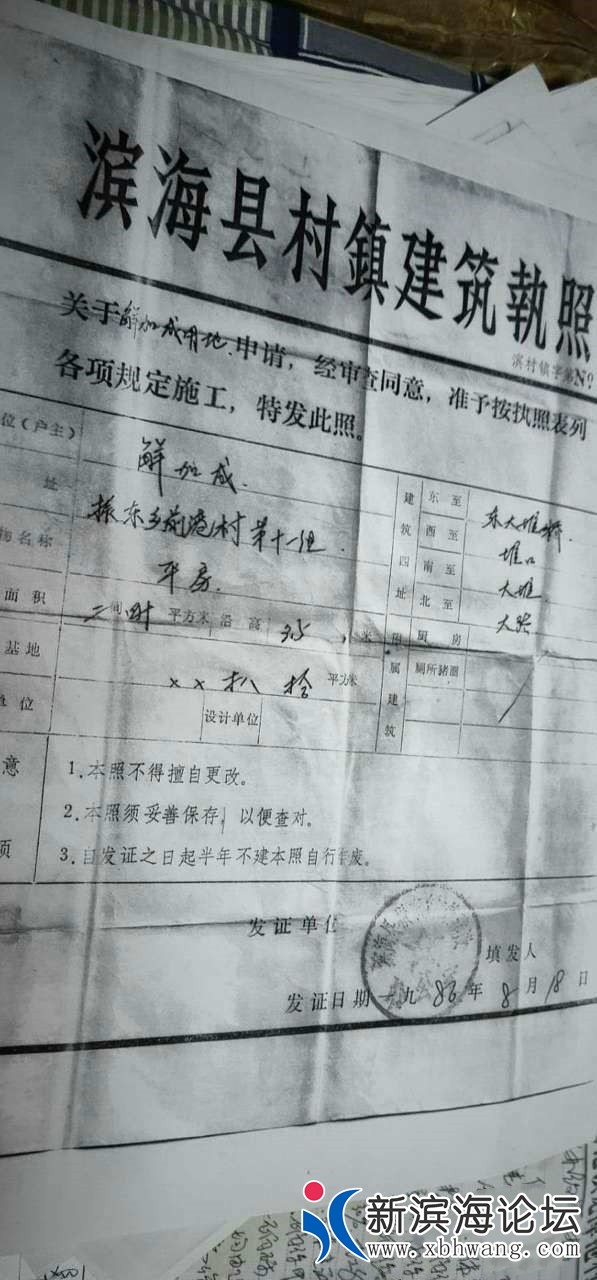 滨海县村鎮建筑執照
滨村镇字第N०
关于解加成用地申请，经审查同意，准予按执照表列
各项规定施工，特发此照。
位(户主) 解加成 建筑四址 东至 东大堆
址 振东乡 村第十一组 西至 堆口
物名称 平房 南至 大堆
面积 二间 平方米 沿高 3.5 米 北至 大
基地 ××扒拾平方米 附属建筑 厨房
单位 设计单位 厕所豬圈
意
项
1.本照不得擅自更改。
2.本照须妥善保存，以便查对。
3.自发证之日起半年不建本照自行作废。
发证单位
填发人
发证日期一九86年8月18日
新滨海论坛
www.xbhwang.com